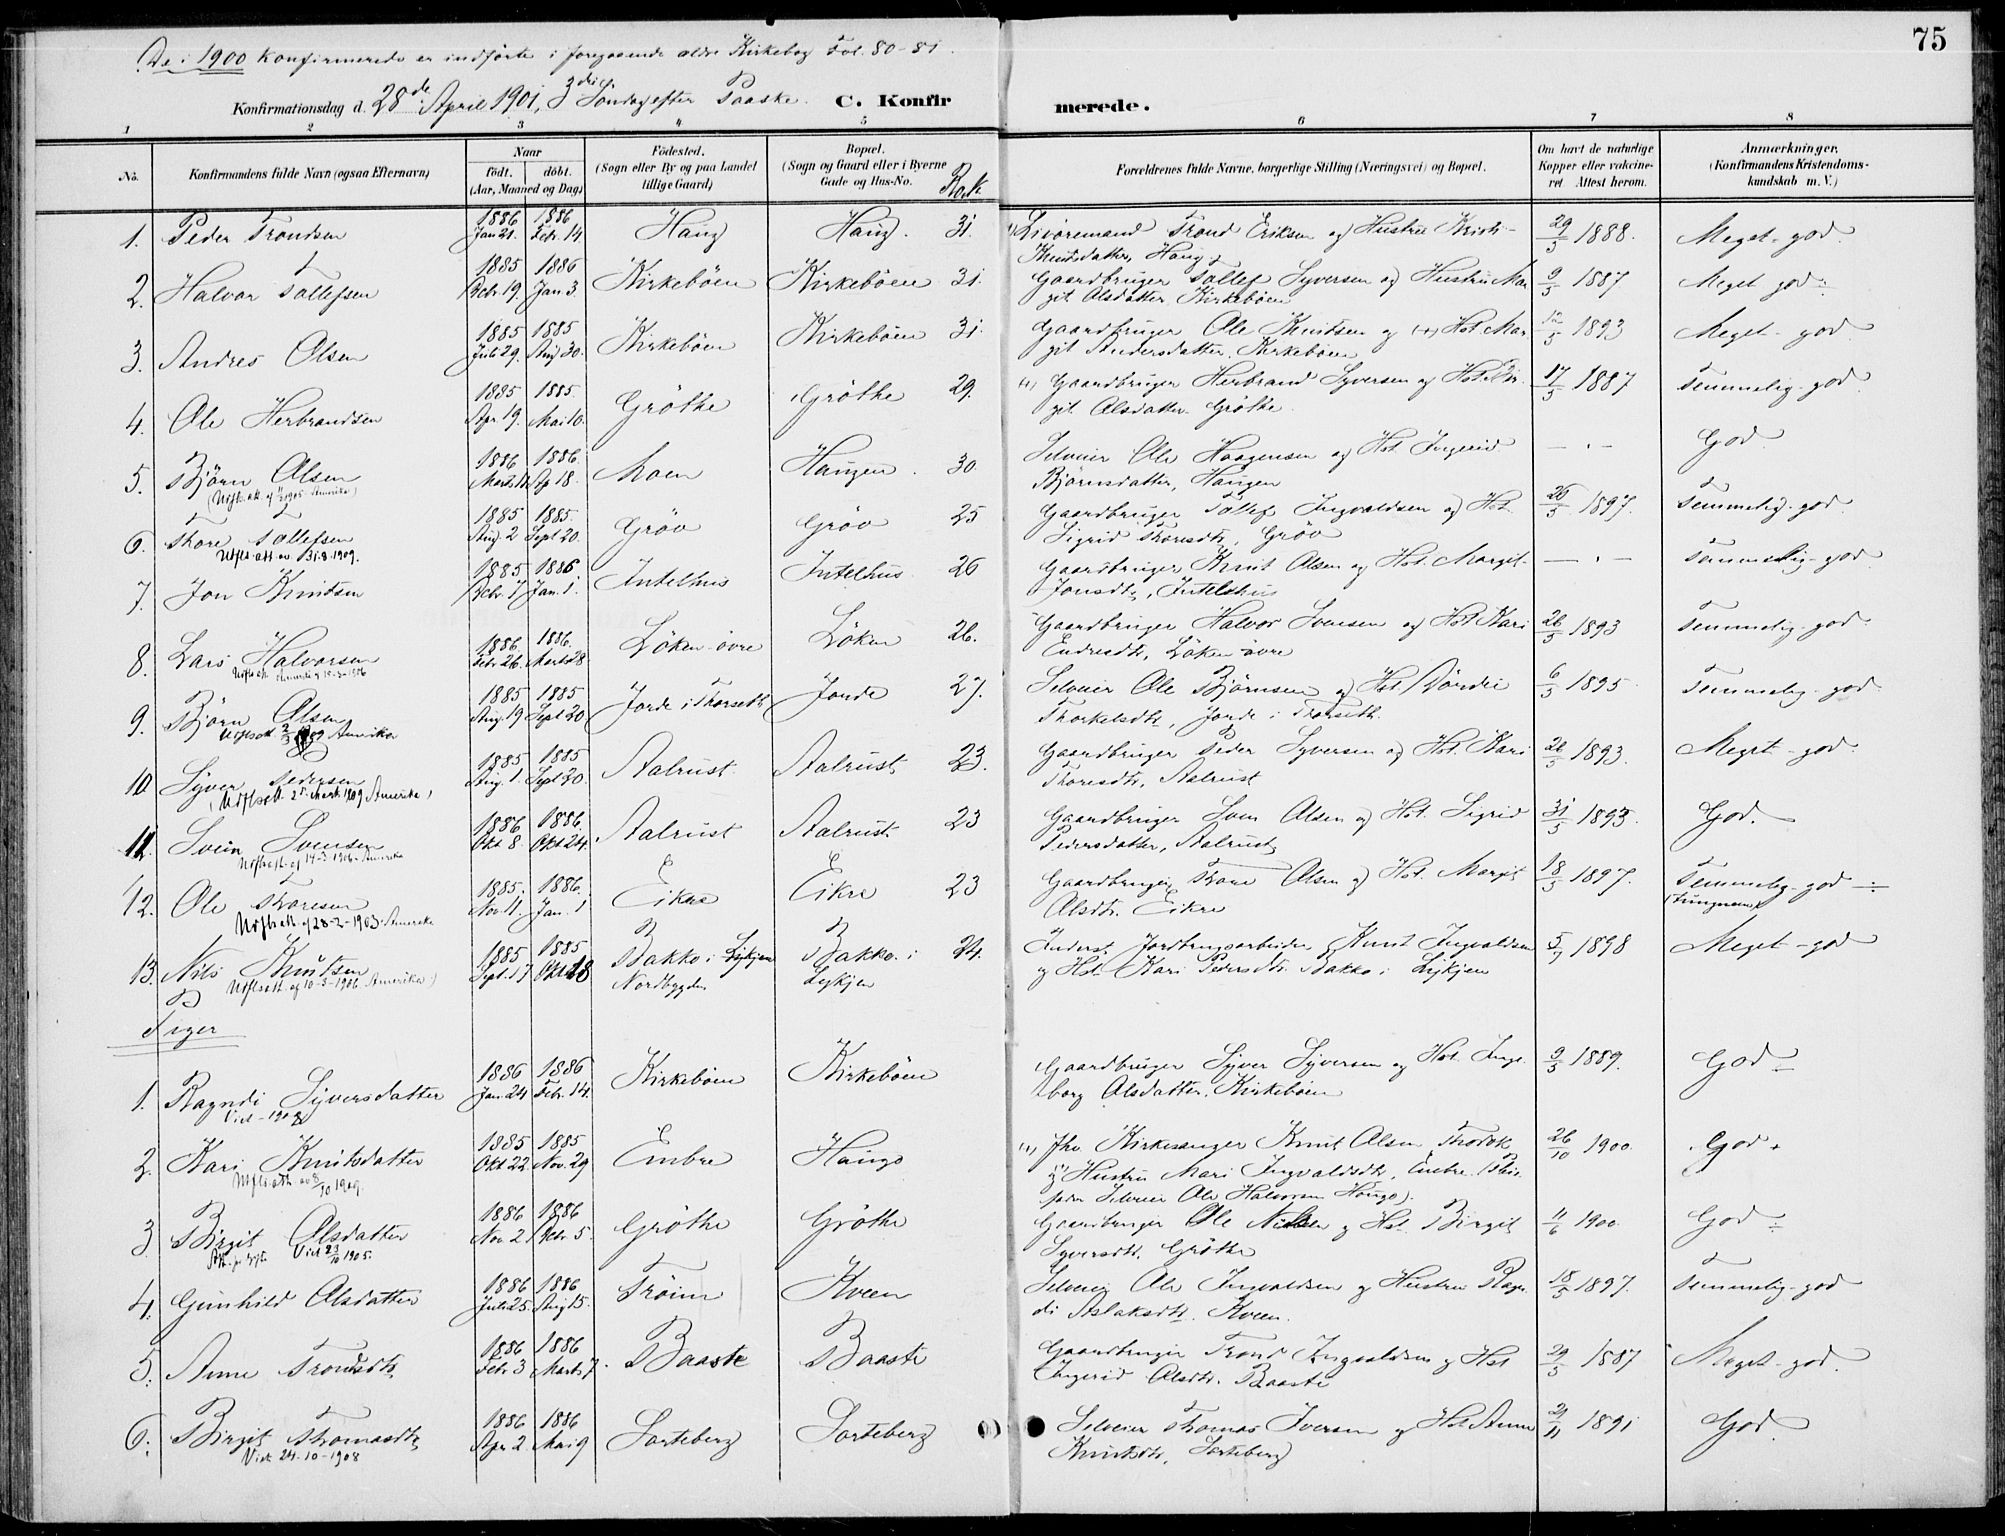 75
De i 1900 Konfirmerede er indførte i foregaaende ældre Kirkebog Fol. 80-81.
Konfirmationsdag d. 28de April 1901, 3die Søndag efter Paaske. C. Konfirmerede.
1 2 3 4 5 6 7 8
No. Konfirmandens fulde Navn (ogsaa Efternavn) Naar født. døbt. (Aar, Maaned og Dag) Fødested. (Sogn eller By og paa Landet tillige Gaard) Bopæl. (Sogn og Gaard eller i Byerne Gade og Hus-No. Forældrenes fulde Navne, borgerlige Stilling (Næringsvei) og Bopæl. Om havt de naturlige Kopper eller vaccineret. Attest herom. Anmærkninger. (Konfirmandens Kristendomskundskab m. V.)
1. Peder Trondsen 1886 Jan 21. 1886 Febr. 14 Haug Haug. 31. Livøremand Trond Eriksen og Hustru Kristi Knudsdatter, Haug 29/5 1888. Meget-god.
2. Halvor Tollefsen 1885 Decbr. 19. 1886 Jan. 3. Kirkebøen Kirkebøen 31. Gaardbruger Tollef Syversen og Hustru Margit Olsdatter Kirkebøen 9/5 1887 Meget god ÷
3. Andres Olsen 1885 Juli 29. 1885 Aug 30. Kirkebøen Kirkebøen 31. Gaardbruger Ole Knudsen og (+) Hst. Margit Andersdatter, Kirkebøen 12/5 1893 Meget-god
4. Ole Herbrandsen 1885 Apr. 19. 1885. Mai 10. Grøthe Grøthe 29. (+) Gaardbruger Herbrand Syversen og Hst. Birgit Olsdatter. Grøthe. 17/5 1887 Temmelig-god
5. Bjørn Olsen 1886 1886. Ap 18. Moen Haugen. 30. Selveier Ole Haagensen og Hst. Ingerid Bjørnsdatter, Haugen — · — God
6. Thore Tollefsen 1885 Aug. 2 1885. Sept 20. Grøv Grøv 25 Gaardbruger Tollef Ingvaldsen og Hst. Sigrid Thoresdtr, Grøv 26/5 1897. Temmelig-god.
Utfls.att. av 31.8.1909.
7. Jon Knudsen 1885 Decbr. 7 1886 Jan. 1. Intelhus Intelhus 26 Gaardbruger Knut Olsen og Hst. Margit Jonsdtr, Intelshus — · — Temmelig-god
8. Lars Halvorsen 1886 Febr 26. 1886. Marts 28 Løken øvre Løken 26. Gaardbruger Halvor Svensen og Hst Kari Endresdtr, Løken øvre 26/5 1893 Temmelig-god.
9. Bjørn Olsen 1885 Aug. 19 1885 Sept 20 Jorde i Thorseth Jorde 27. Selveier Ole Bjørnsen og Hst. Dordei Thorkelsdtr, Jorde i Thorseth. 6/5 1895 Temmelig-god
10 Syver Pedersen 1885 Aug. 1. 1885 Sept 20. Aalrust. Aalrust 23. Gaardbruger Peder Syversen og Hst. Kari Thoresdtr, Aalrust 26/5 1893. Meget-god
(Utflsatt. 25 Mark 1909 Amerika)
11. Svein Svensen 1886 Okt 8. 1886. Okt 24. Aalrust Aalrust 23 Gaardbruger Sven Olsen og Hst. Sigrid Pedersdatter, Aalrust 31/5 1893. God.
12. Ole Thoresen 1885. Nov. 11. 1886. Jan. 1 Eikre Eikre 23 Gaardbruger Thore Olsen og Hst. Margit Olsdtr. Eikre 18/5 1897. Temmelig-god ÷ (Tungnem)
Utflsatt. af 28-2-1903. Amerika
13. Nils Knutsen 1885 Sept. 17 1885 Okt 18 Bakko i Lykjen Nordbygden Bakko i Lykjen 24. Inderst Jordbrugsarbeider Knut Ingvaldsen og Hst. Kari Pedersdtr. Bakko i Lykjen 5/7 1898 Meget-god
Utflsatt. af 10-3-1906 Amerika)
Piger
1. Ragndi Syversdatter 1886 Jan. 24 1886 Febr. 14. Kirkebøen Kirkebøen Gaardbruger Syver Syversen og Hst. Ingeborg Olsdatter, Kirkebøen 9/5 1889. God ÷
Viet-1908
2. Kari Knutsdatter 1885 Okt 22 1885 Nov. 29 Embre Haugo (+) Fhv. Kirkesanger Knut Olsen og Hustru Mari Ingvaldsdtr, Embre Selveier Ole Halvorsen Haugo). 26/10 1900. God +
Utfls.att. av 8/10 1909.
3 Birgit Olsdatter 1886 Nov. 2 1886 Decbr. 5. Grøthe Grøthe Gaardbruger Ole Nilsen og Hst. Birgit Syversdtr. Grøthe 11/6 1900. God ÷
Viet 23/10 1905.
4. Gunhild Olsdatter 1886 Juli 25. 1886 Aug 15. Trøim Kveen Selveier Ole Ingvaldsen og Hustru Ragndi Aslaksdtr. Kveen. 18/5 1897. Temmelig-god
5. Anne Trondsdtr 1886 Febr. 3 1886 Marts 7. Baaste Baaste Gaardbruger Trond Ingvaldsen og Hst Ingerid Olsdtr. Baaste 29/5 1887 Meget-god.
6. Birgit Thomasdtr 1886 Apr. 2 1886 Mai 9 Sorteberg Sorteberg Selveier Thomas Iversen og Hst. Anne Knutsdtr, Sorteberg 21/11 1891 God.
Viet 24.-10-1908